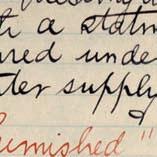 h a statm
ured under
ter supply
furnished "